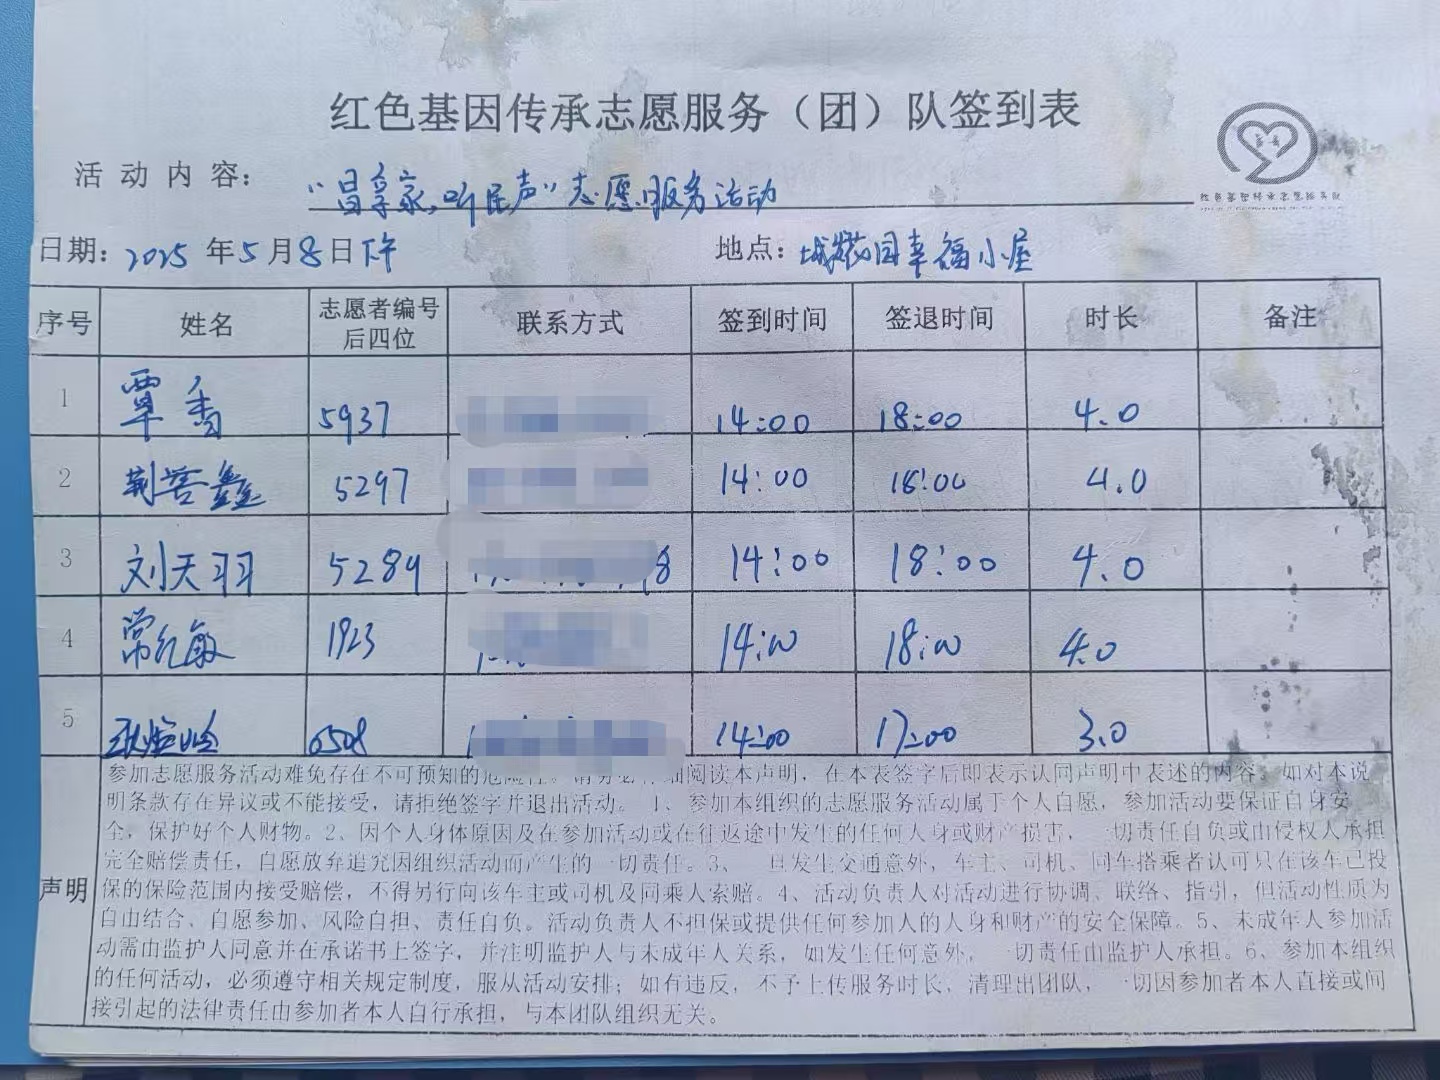 红色基因传承志愿服务（团）队签到表
活动内容："昌享家,听民声"志愿服务活动
日期：2025年5月8日下午 地点：城花园幸福小屋
序号 姓名 志愿者编号后四位 联系方式 签到时间 签退时间 时长 备注
1 覃香 5937 14:00 18:00 4.0
2 荆蕓鑫 5297 14:00 18:00 4.0
3 刘天羽 5289 8 14:00 18:00 4.0
4 常红敏 1923 14:00 18:00 4.0
5 0508 14:00 17:00 3.0
声明
参加志愿服务活动难免存在不可预知的危险性。请务必仔细阅读本声明，在本表签字后即表示认同声明中表述的内容。如对本说
明条款存在异议或不能接受，请拒绝签字并退出活动。1、参加本组织的志愿服务活动属于个人自愿，参加活动要保证自身安
全，保护好个人财物。2、因个人身体原因及在参加活动或在往返途中发生的任何人身或财产损害，一切责任自负或由侵权人承担
完全赔偿责任，自愿放弃追究因组织活动而产生的一切责任。3、一旦发生交通意外，车主、司机、同车搭乘者认可只在该车已投
保的保险范围内接受赔偿，不得另行向该车主或司机及同乘人索赔。4、活动负责人对活动进行协调、联络、指引，但活动性质为
自由结合、自愿参加、风险自担、责任自负。活动负责人不担保或提供任何参加人的人身和财产的安全保障。5、未成年人参加活
动需由监护人同意并在承诺书上签字，并注明监护人与未成年人关系，如发生任何意外，一切责任由监护人承担。6、参加本组织
的任何活动，必须遵守相关规定制度，服从活动安排；如有违反，不予上传服务时长，清理出团队，一切因参加者本人直接或间
接引起的法律责任由参加者本人自行承担，与本团队组织无关。